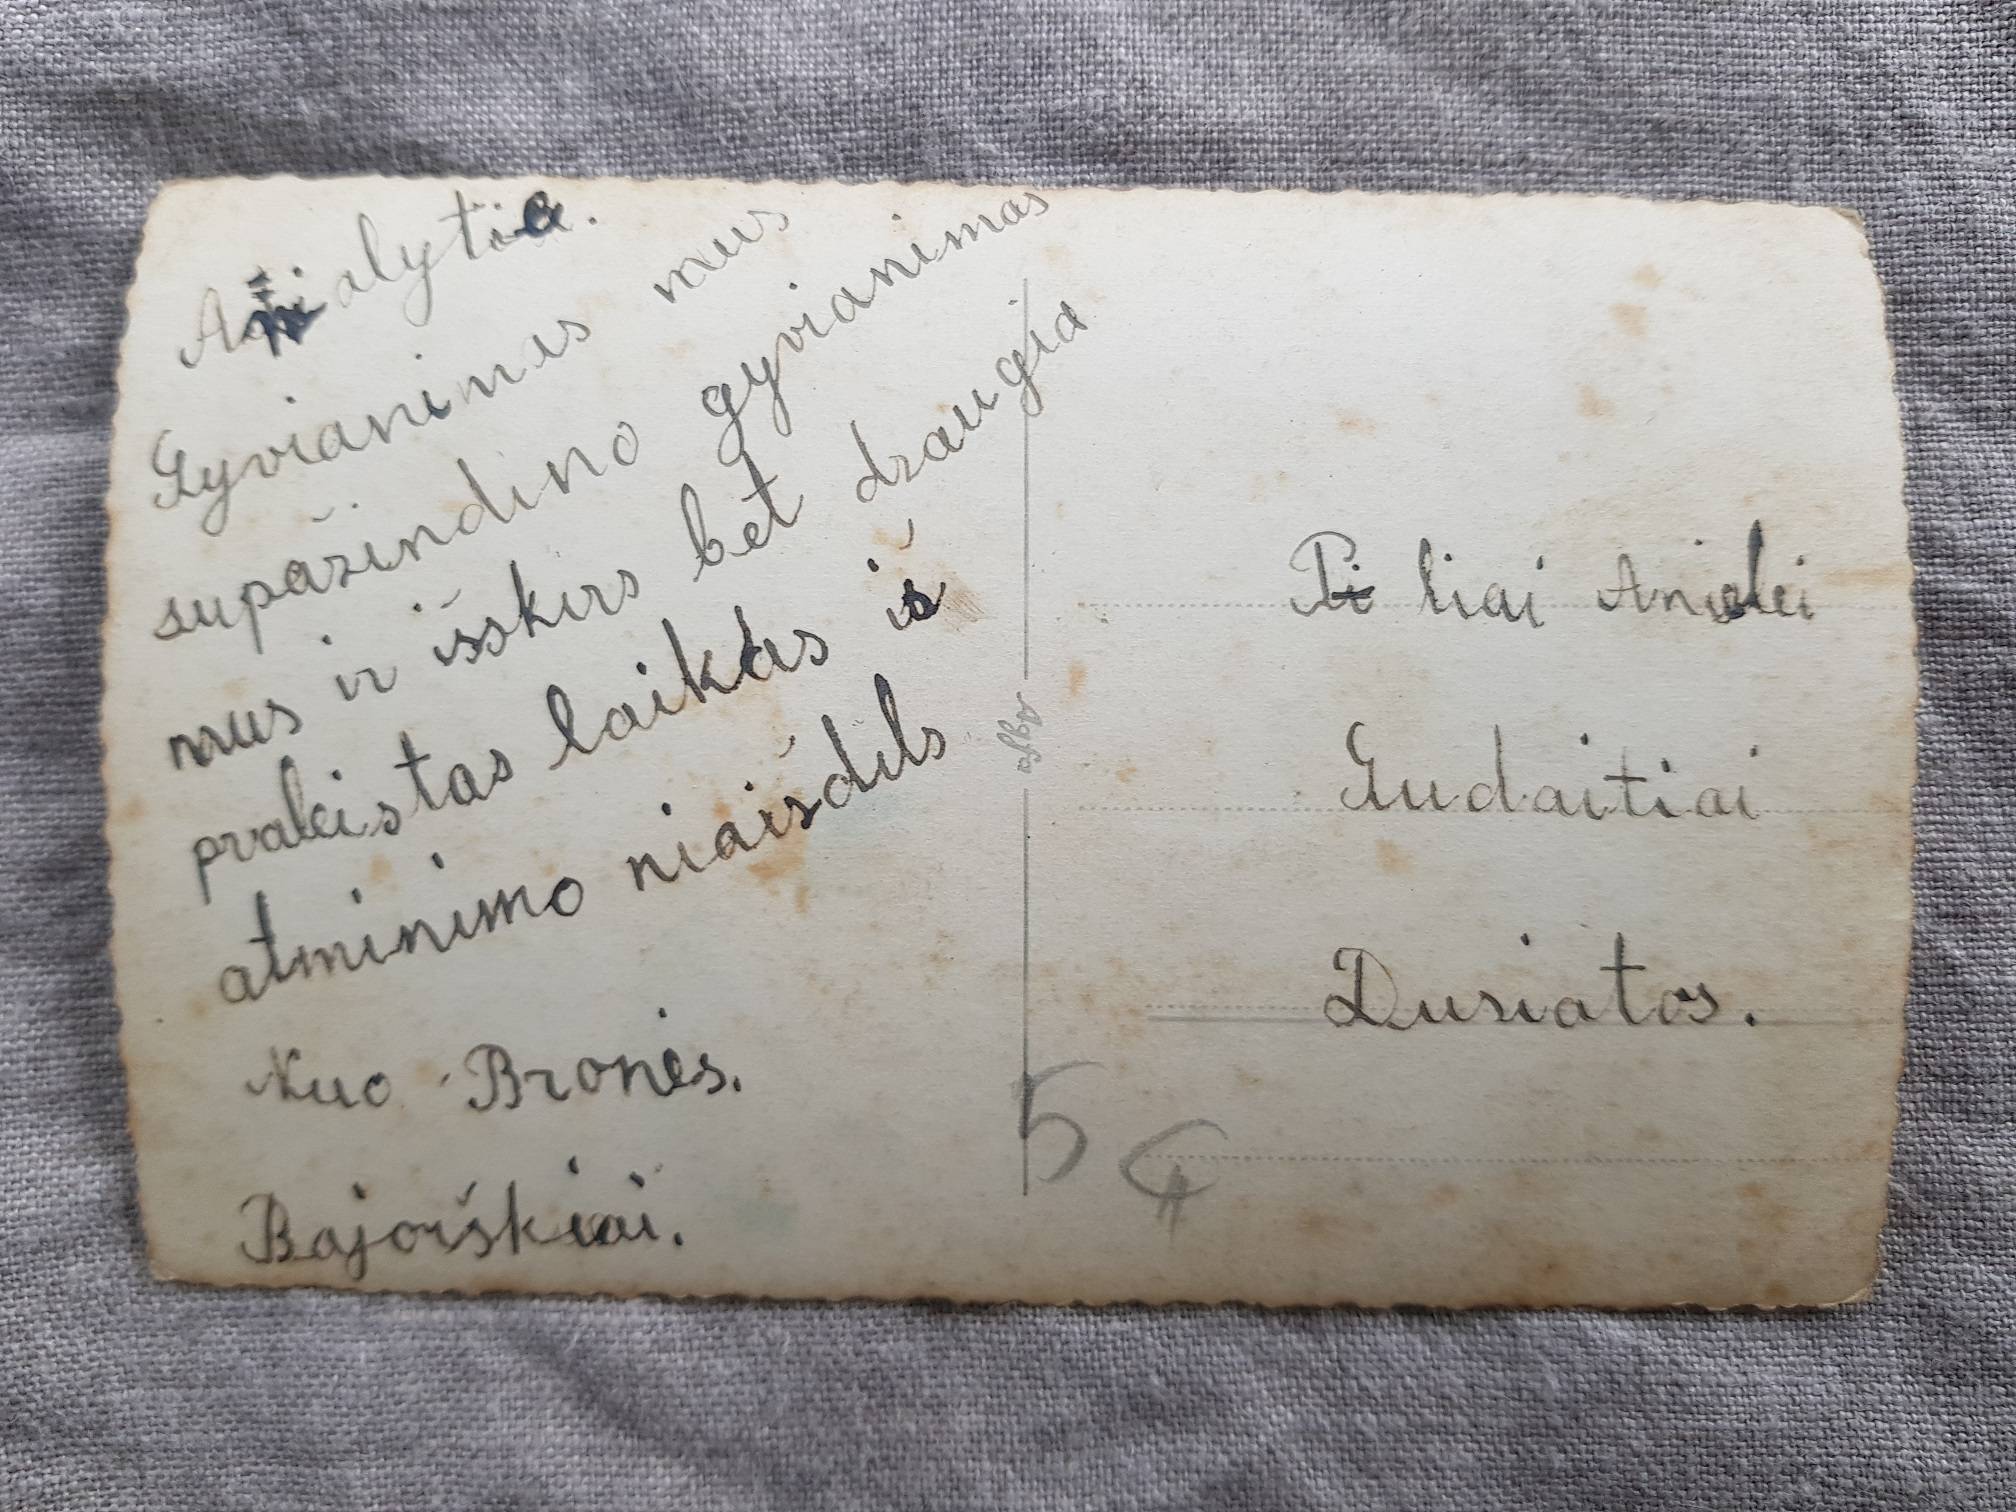 Anialytia.
Gyvianimas mus
supažindino gyvianimas
mus ir išskirs bet draugia
praleistas laikas iš
atminimo niaisdils
Nuo Bronės.
Bajorškiai.
Agfa
liai Anielei
Gudaitiai
Dusiatos.
5